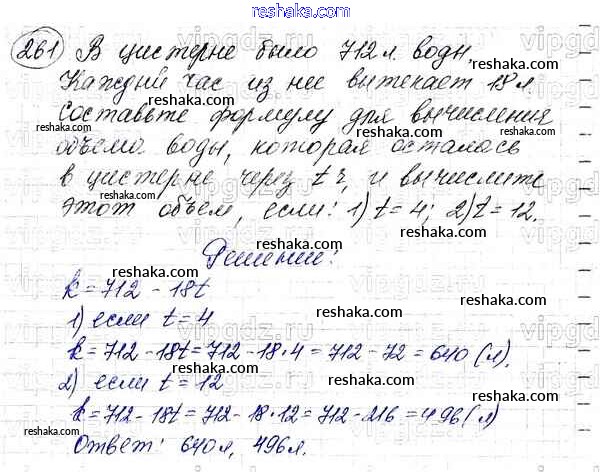 reshaka.com
261 В цистерне было 712 л. воды
Каждый час из нее вытекает 18 л.
reshaka.com reshaka.com reshaka.com
Составьте формулу для вычисления
reshaka.com
объема воды, которая осталась
reshaka.com reshaka.com
в цистерне через t ч, и вычислите
этот объем, если: 1) t = 4; 2) t = 12.
reshaka.com reshaka.com reshaka.com
Решение:
reshaka.com
k = 712 - 18t
reshaka.com reshaka.com
1) если t = 4
reshaka.com
k = 712 - 18t = 712 - 18 · 4 = 712 - 72 = 640 (л).
reshaka.com reshaka.com
2) если t = 12
reshaka.com
k = 712 - 18t = 712 - 18 · 12 = 712 - 216 = 496 (л)
reshaka.com reshaka.com
Ответ: 640 л, 496 л.
reshaka.com